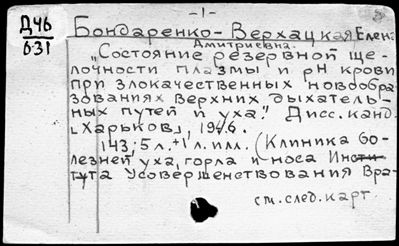 -1-
Д46
631
Бондаренко-Верхацкая Елена
Дмитриевна.
„Состояние резервной ще-
лочности плазмы и pH крови
при злокачественных новообра-
зованиях верхних дыхатель-
ных путей и уха." Дисс. канд.
Харьков, 1946.
143; 5 л. +1 л. илл. (Клиника бо-
лезней уха, горла и носа Инсти-
тута Усовершенствования Вра-
см. след. карт.